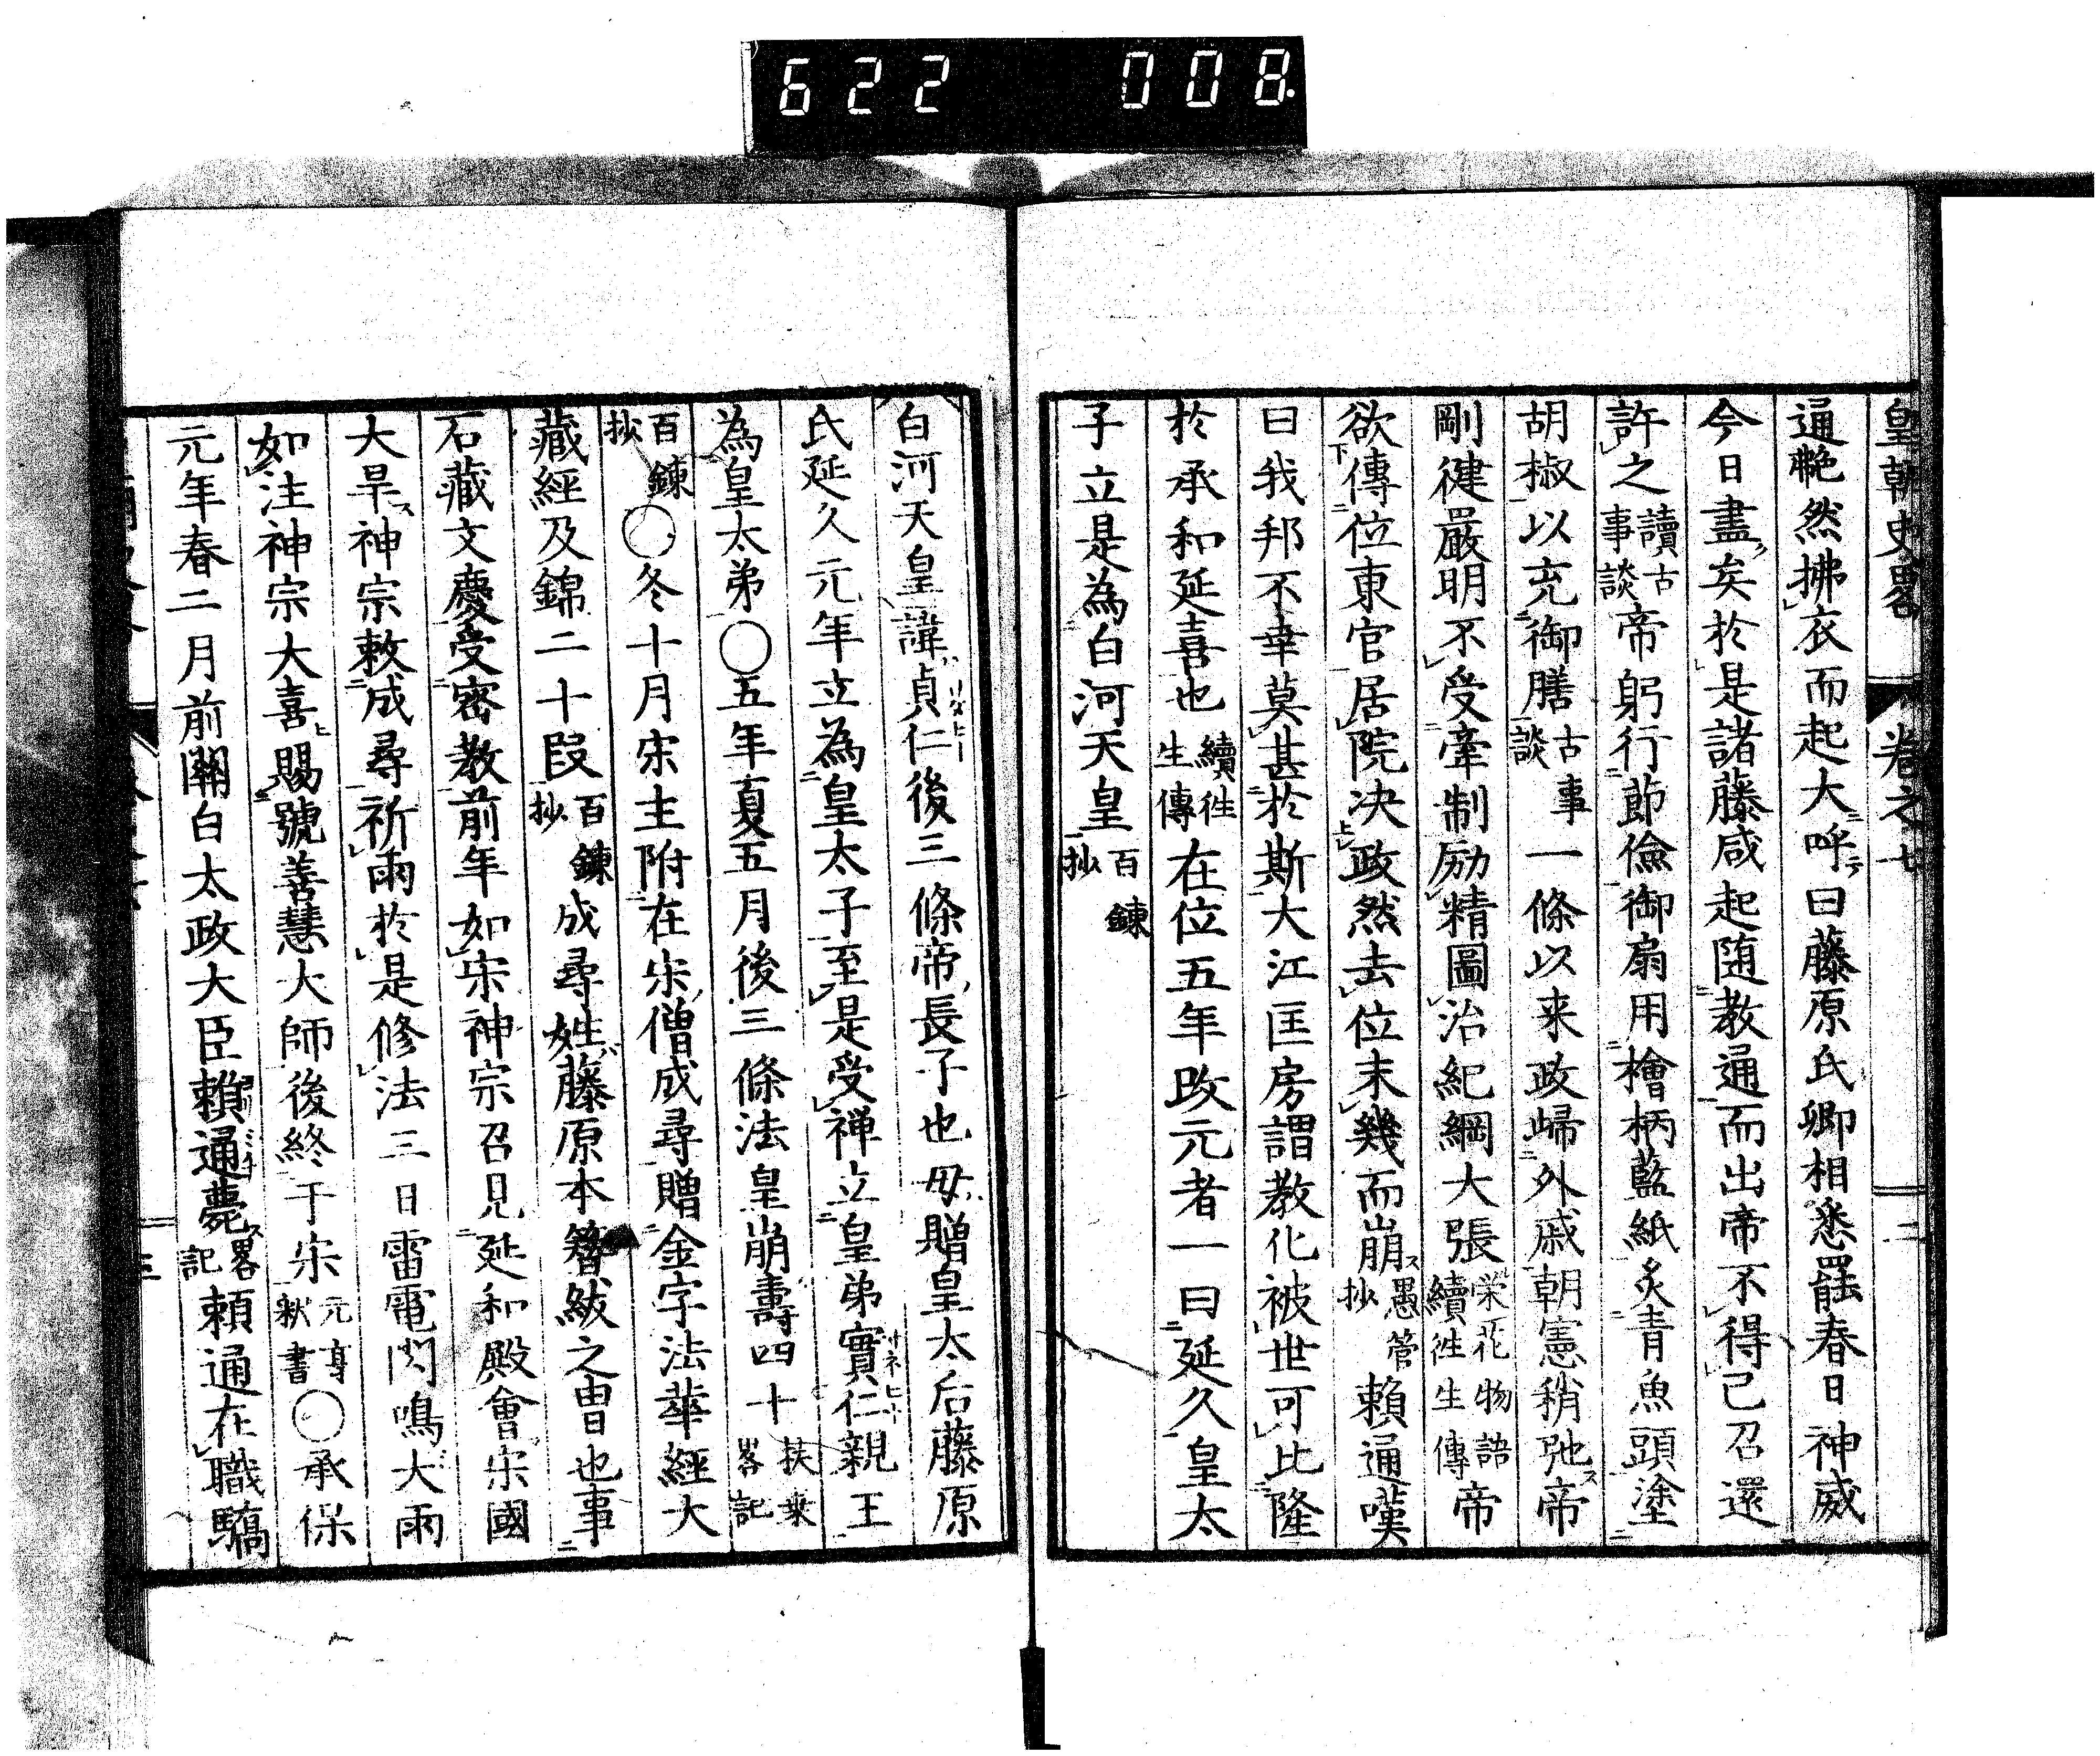 622 008.
皇朝史畧 卷之七 二
通艴然拂衣而起大呼曰藤原氏卿相悉罷春日神威
今日盡矣於是諸藤咸起随教通而出帝不得已召還
許之讀古事談帝躬行節儉御扇用檜柄藍紙炙青魚頭塗
胡椒以充御膳古事談一條以来政歸外戚朝憲稍弛帝
剛健嚴明不受牽制励精圖治紀綱大張栄花物語續徃生傳帝
欲傳位東宮居院决政然去位未幾而崩愚管抄頼通嘆
曰我邦不幸莫甚於斯大江匡房謂教化被世可比隆
於承和延喜也續徃生傳在位五年改元者一曰延久皇太
子立是為白河天皇百鍊抄
白河天皇諱貞仁後三條帝長子也母贈皇太后藤原
氏延久元年立為皇太子至是受禅立皇弟實仁親王
為皇太弟○五年夏五月後三條法皇崩壽四十扶桒畧記
百鍊抄○冬十月宋主附在宋僧成尋贈金字法華經大
藏經及錦二十段百鍊抄成尋姓藤原本簪紱之冑也事
石藏文慶受密教前年如宋神宗召見延和殿會宋國
大旱神宗敕成尋祈雨於是修法三日雷電閃鳴大雨
如注神宗大喜賜號善慧大師後終于宋元亨釈書○承保
元年春二月前關白太政大臣頼通薨畧記頼通在職驕
三